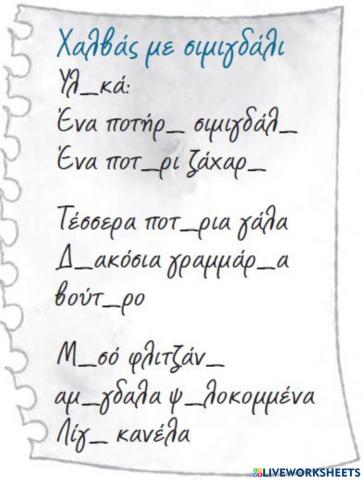 Χαλβάς με σιμιγδάλι
Υλ_κά:
Ένα ποτήρ_ σιμιγδάλ_
Ένα ποτ_ρι ζάχαρ_
Τέσσερα ποτ_ρια γάλα
Δ_ακόσια γραμμάρ_α
βούτ_ρο
Μ_σό φλιτζάν_
αμ_γδαλα ψ_λοκομμένα
Λίγ_ κανέλα
LIVEWORKSHEETS